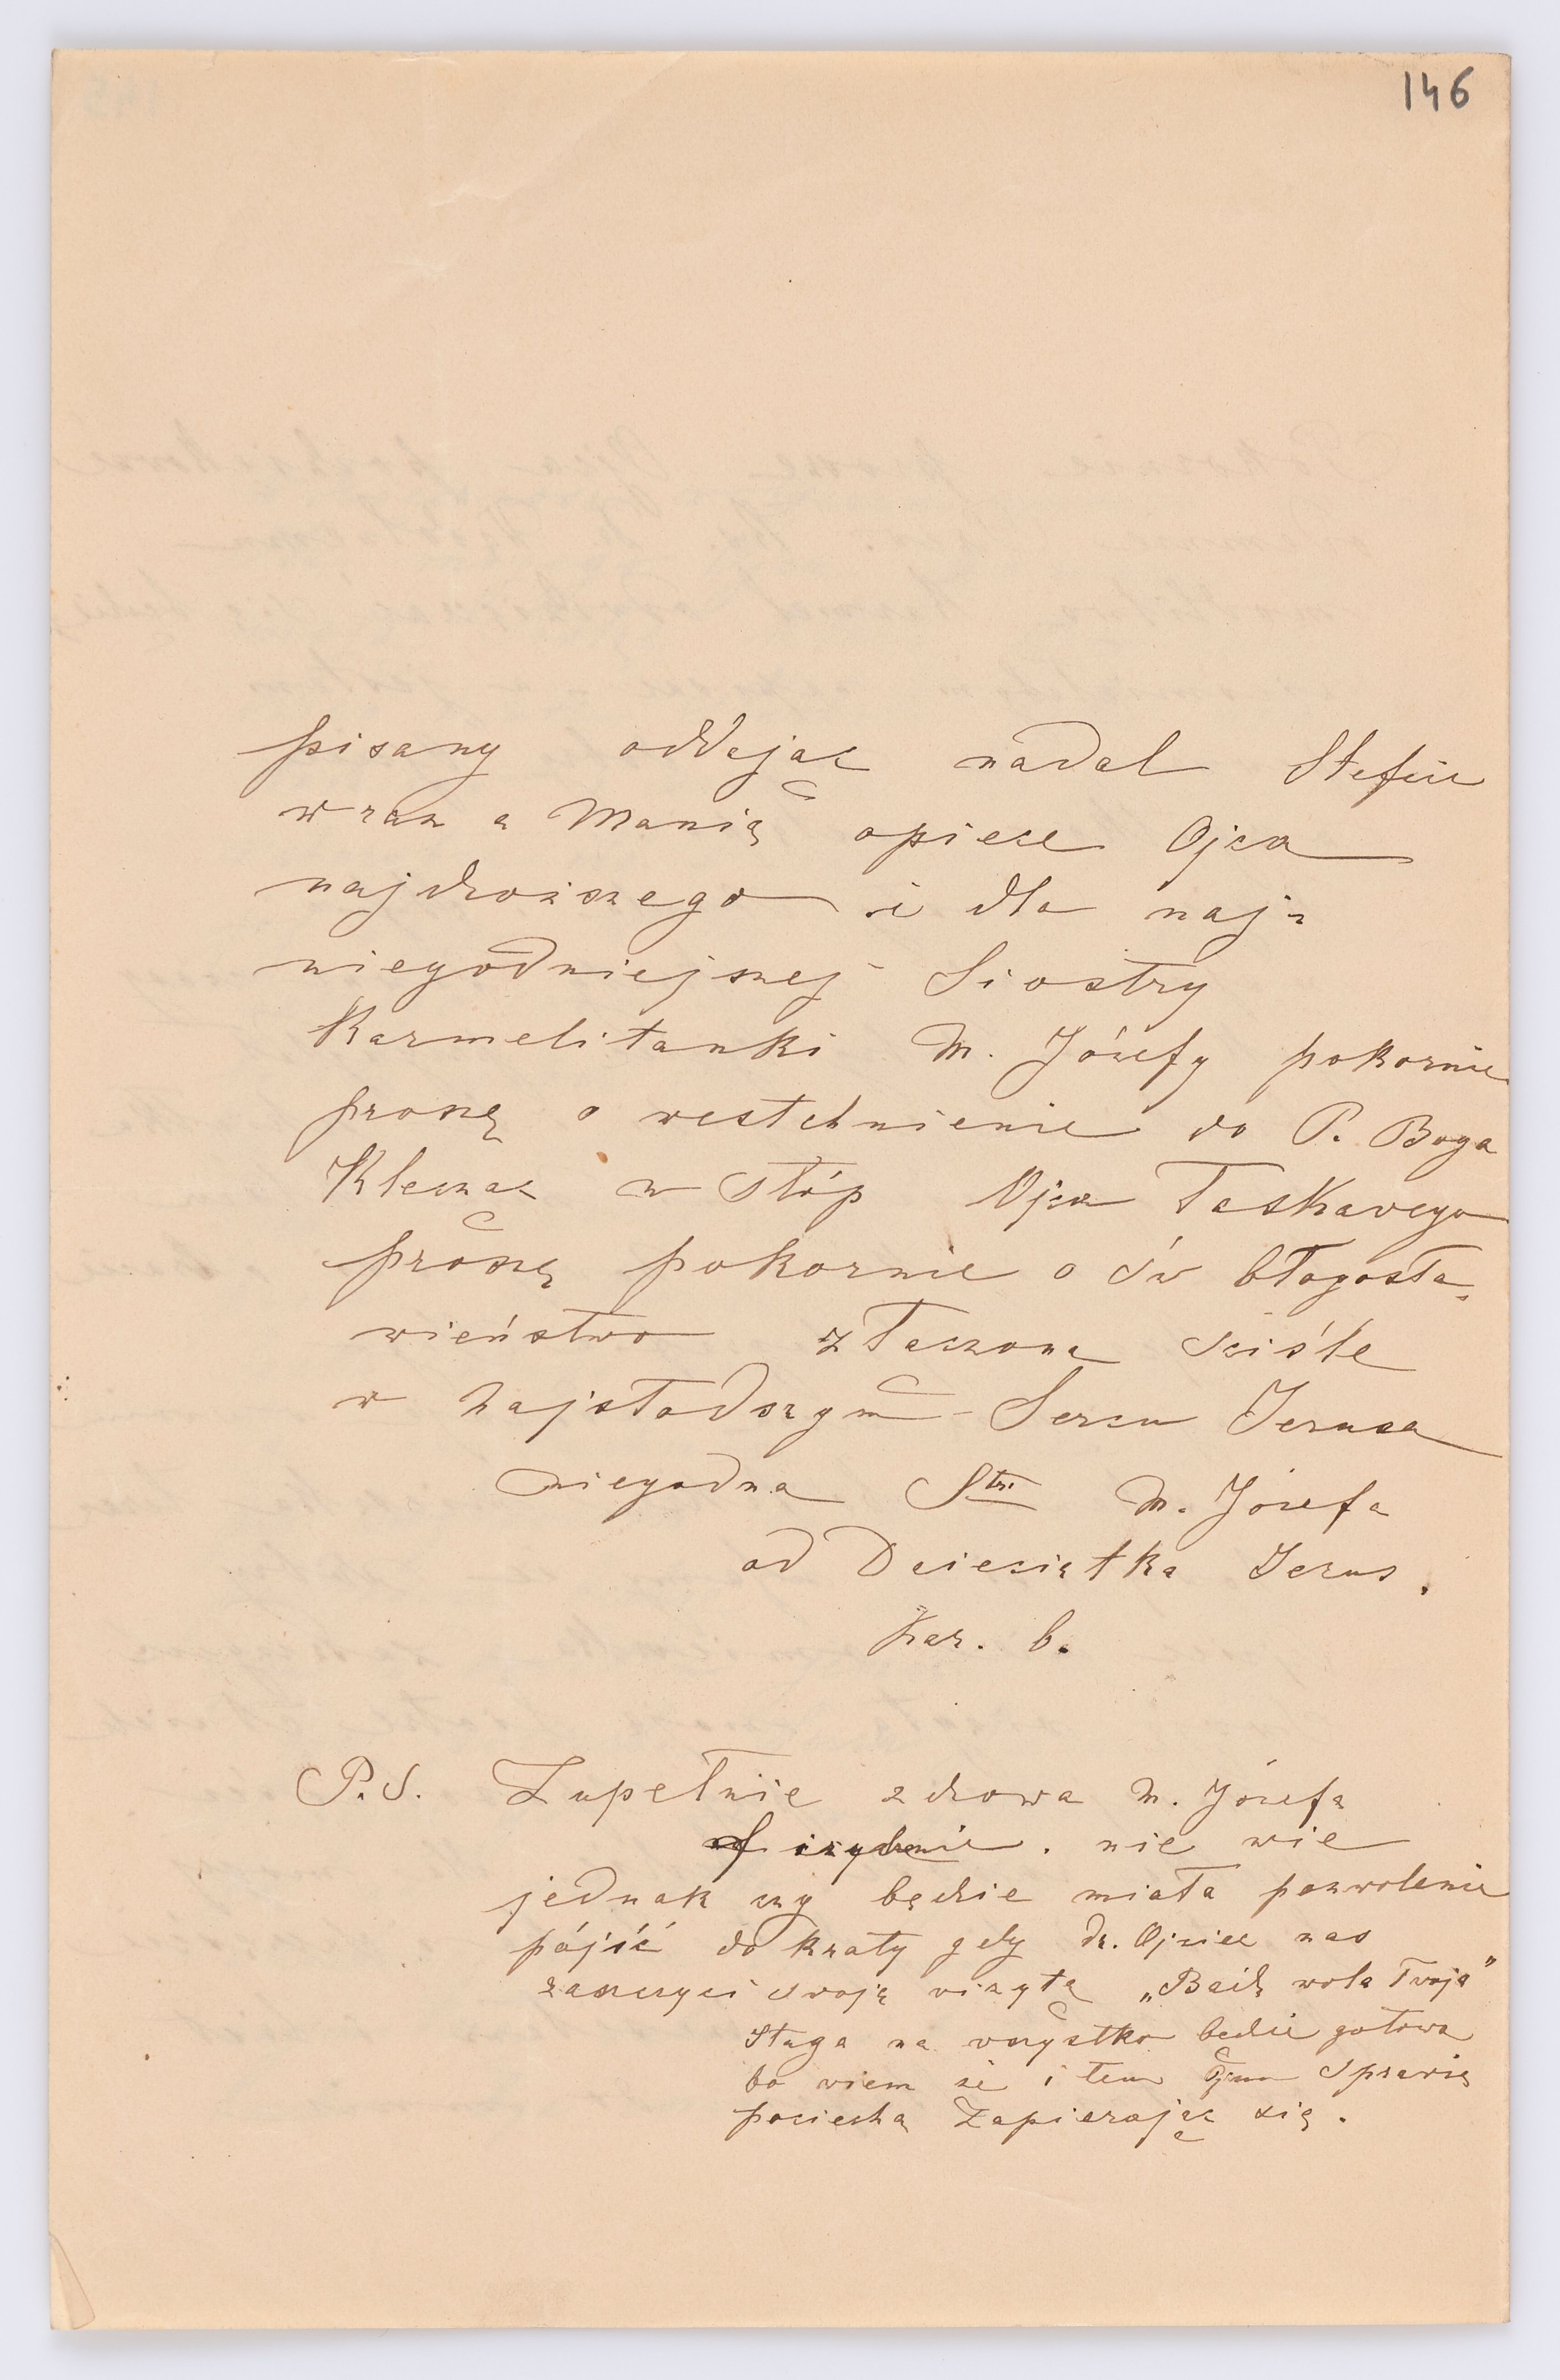 146
pisany oddając nadal Stefcie
wraz z Manią opiece Ojca
najdroższego i dla naj-
niegodniejszej Siostry
Karmelitanki M. Józefy pokornie
proszę o westchnienie do P. Boga
Klecząc u stóp Ojca Łaskawego
proszę pokornie o św błogosła„
wieństwo złączona ściśle
w Najsłodszym Sercu Jezusa
niegodna Str. M. Józefa
od Dzieciątka Jezus.
Kar. b.
P.S. Zupełnie zdrowa M. Józefa
fizycznie. nie wie
jednak czy będzie miała pozwolenie
pójść do kraty gdy dr. Ojciec nas
zaszczyci swoją wizytą „Bądź wola Twoja"
Sługa na wszystko będzie gotowa
bo wiem że i tem Ojcu sprawię
pociechę Zapierając się.